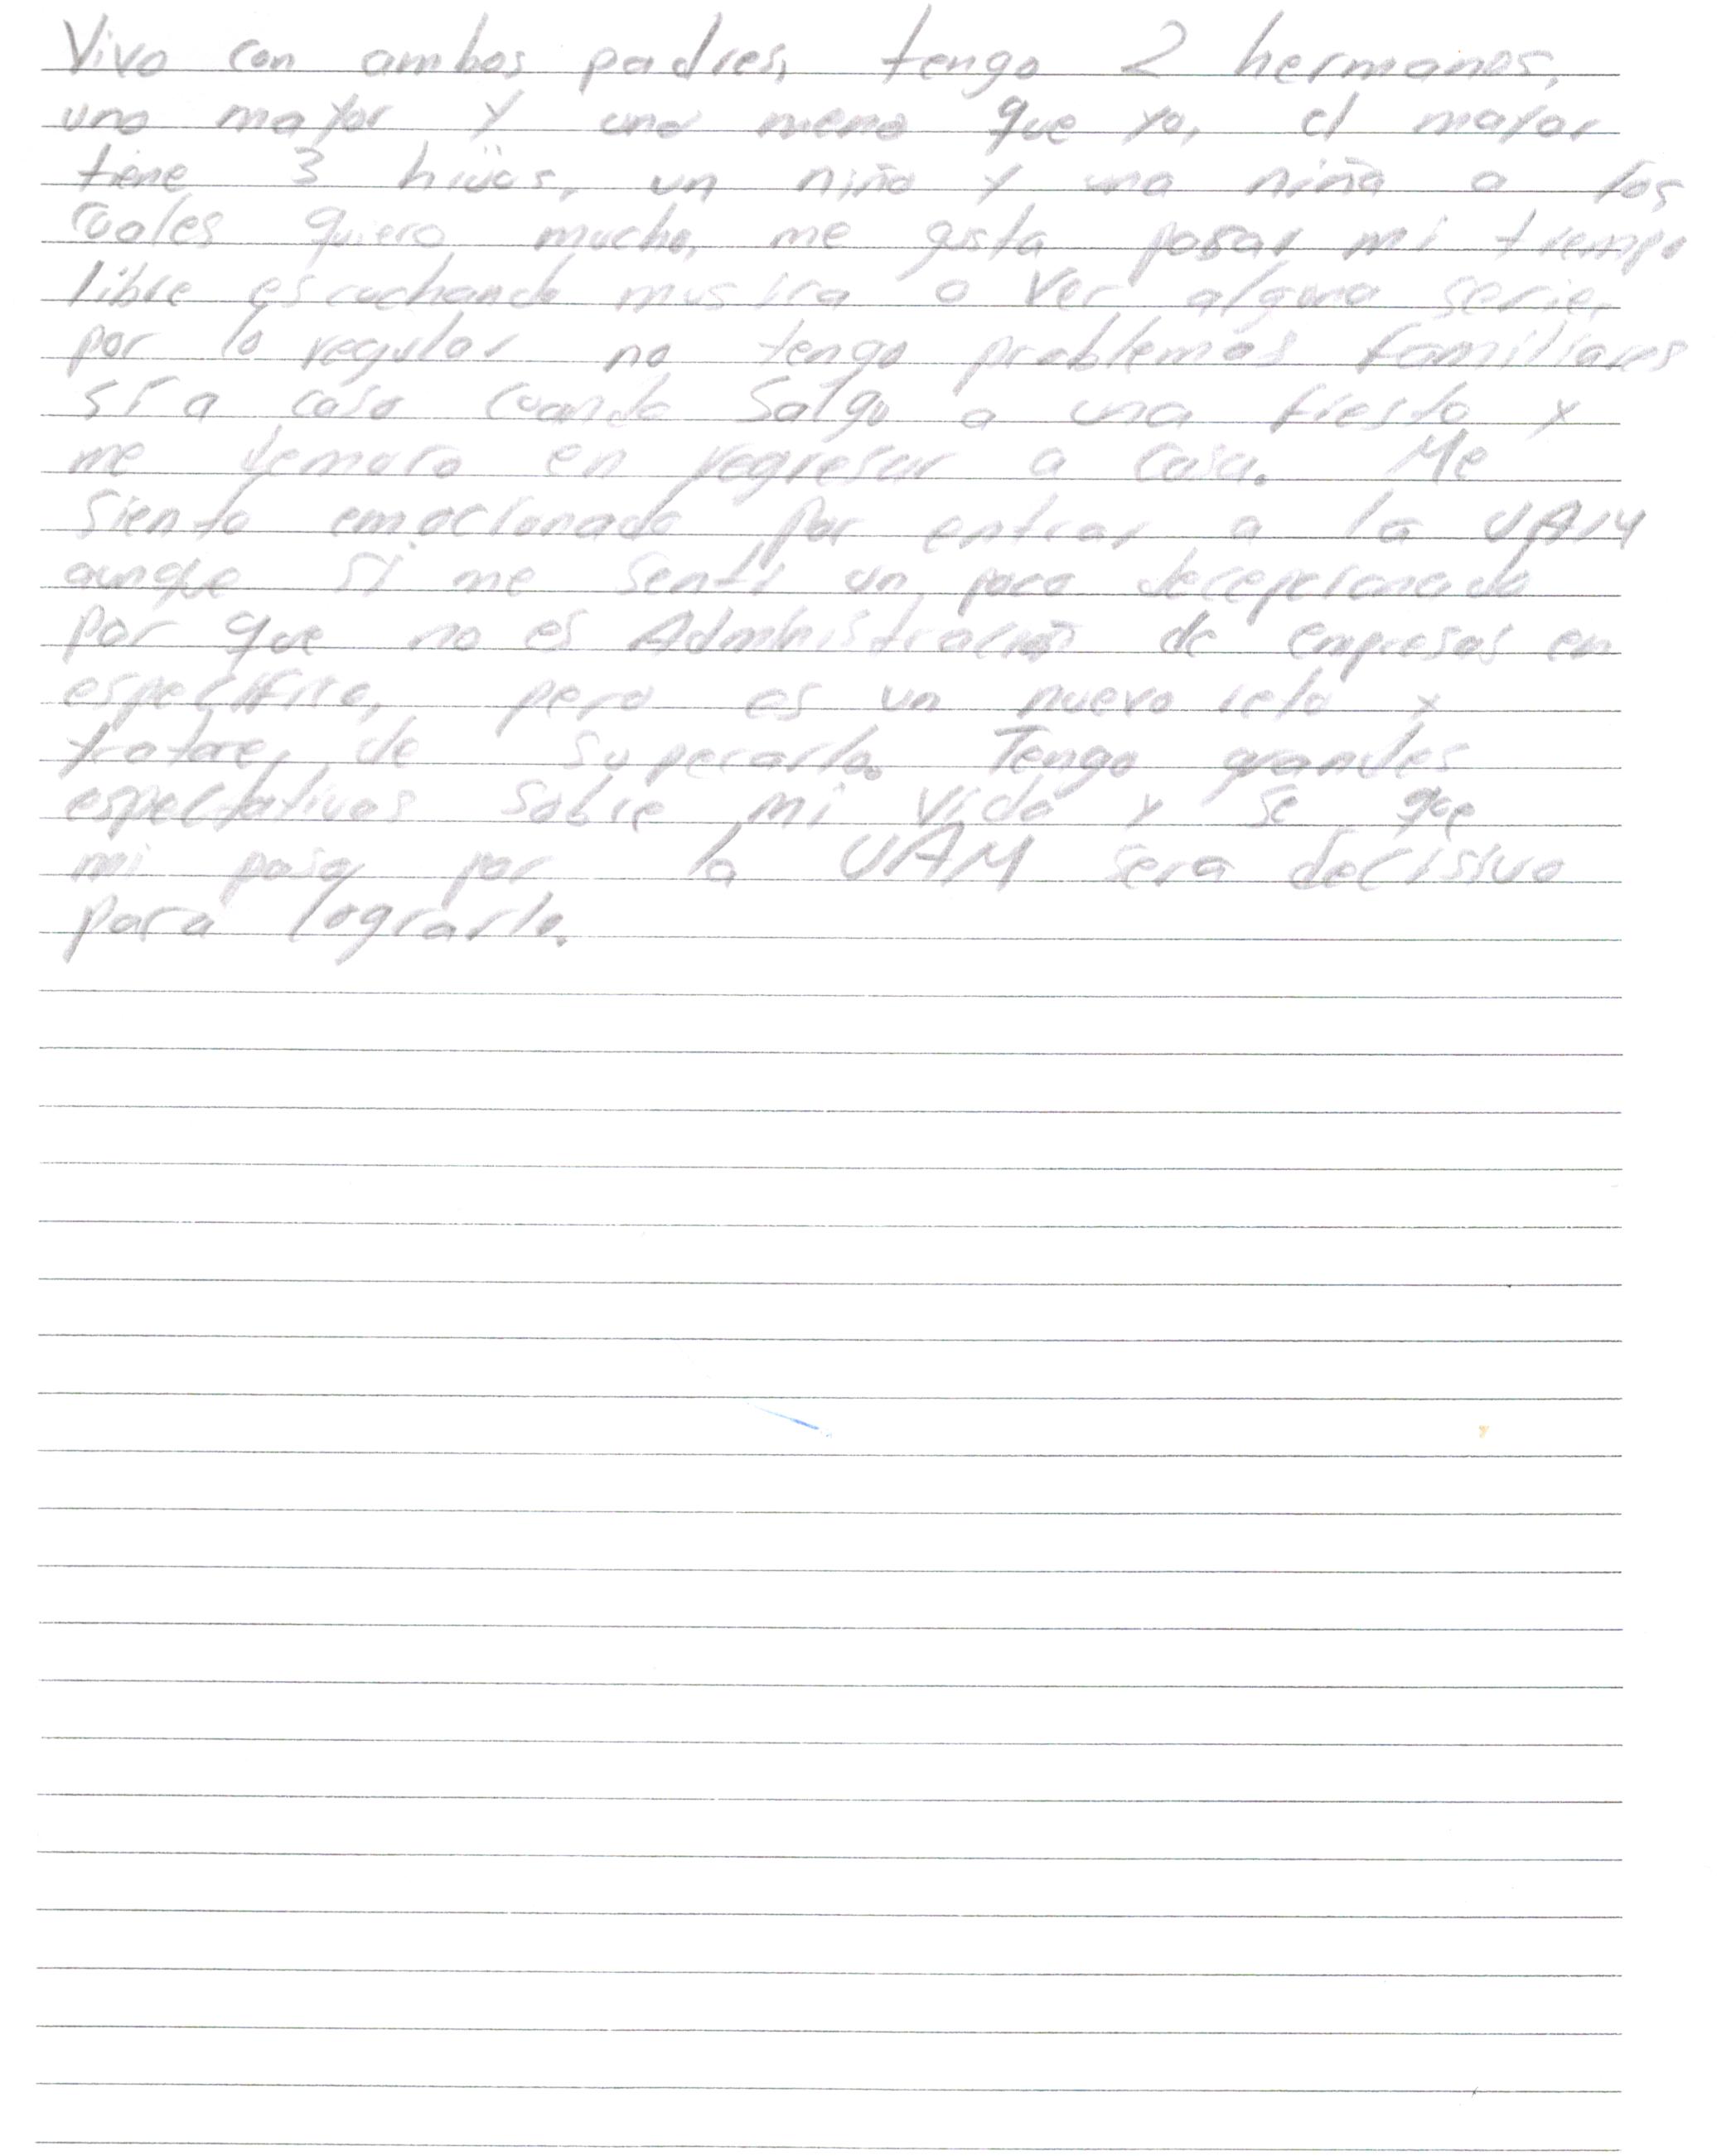 Vivo con ambos padres, tengo 2 hermanos,
uno mayor y uno meno que yo, el mayor
tiene 3 hijos, un niño y una niña a los
cuales quiero mucho, me gusta pasar mi tiempo
libre escuchando musica o ver alguna serie,
por lo regular no tengo problemas familiares
si a caso cuando salgo a una fiesta y
me demoro en regresar a casa. Me
siento emocionado por entrar a la UAM
aunque si me senti un poco decepcionado
por que no es Administración de empresas en
especifico, pero es un nuevo reto y
tratare de superarlo. Tengo grandes
espectativas sobre mi vida y se que
mi paso por la UAM sera decisivo
para lograrlo.